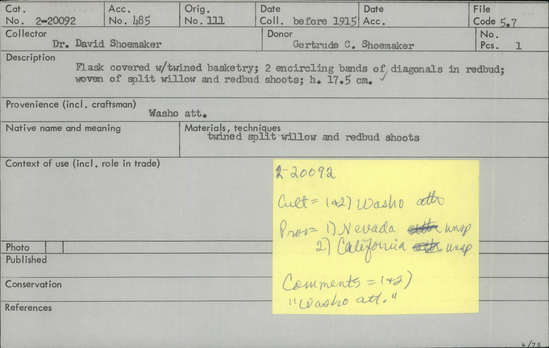 Cat. Acc. Orig. Date Date File
No. 2-20092 No. 485 No. 111 Coll. before 1915 Acc. Code 5.7
Collector Donor No.
Dr. David Shoemaker Gertrude C. Shoemaker Pcs. 1
Description
Flask covered w/twined basketry; 2 encircling bands of diagonals in redbud;
woven of split willow and redbud shoots; h. 17.5 cm.
Provenience (incl. craftsman)
Washo att.
Native name and meaning Materials, techniques
twined split willow and redbud shoots
Context of use (incl. role in trade)
2-20092
Cult = 1+2) Washo attr
Prov = 1) Nevada unsp
2) California unsp
Comments = 1+2)
"Washo att."
Photo
Published
Conservation
References